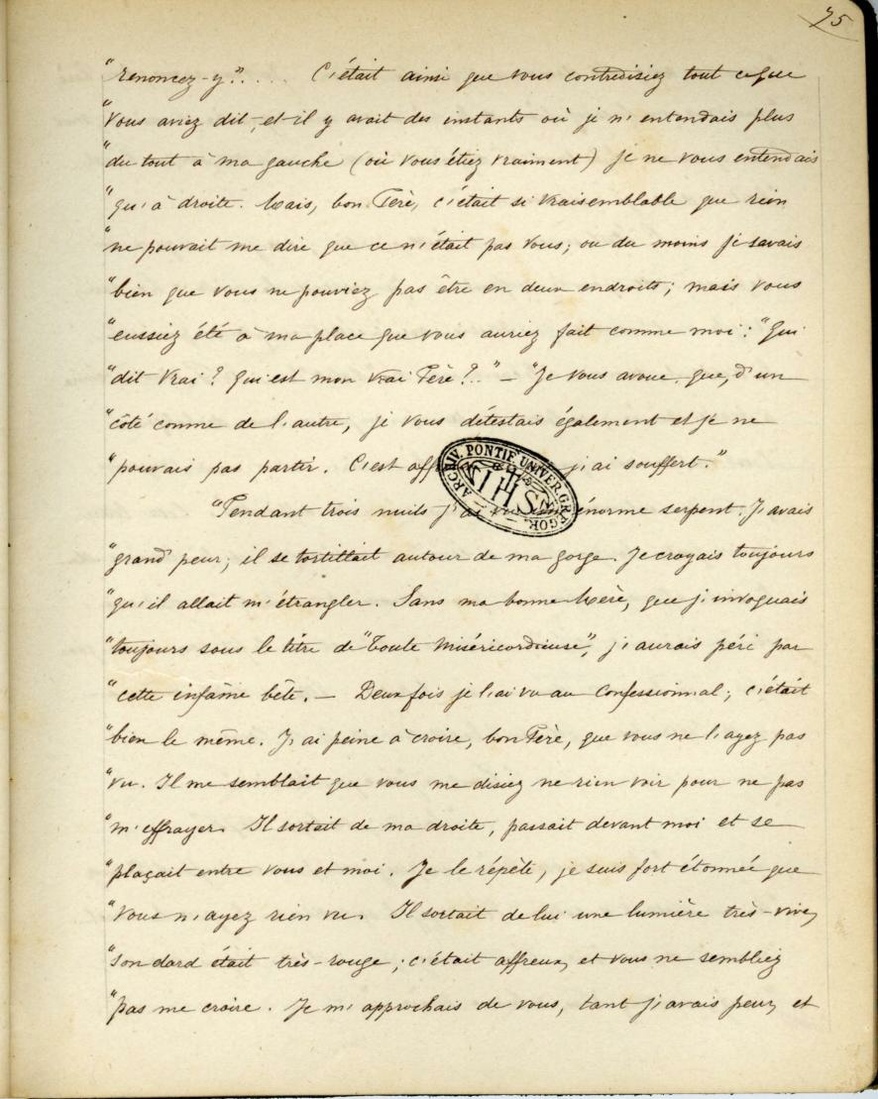 75
"renoncez-y"..... C'était ainsi que vous contredisiez tout ce que
"vous aviez dit, et il y avait des instants où je n'entendais plus
"du tout à ma gauche (où vous étiez vraiment) je ne vous entendais
"qu'à droite. Mais, bon Père, c'était si vraisemblable que rien
"ne pouvait me dire que ce n'était pas vous; ou du moins je savais
"bien que vous ne pouviez pas être en deux endroits; mais vous
"eussiez été à ma place que vous auriez fait comme moi: "Qui
"dit vrai? Qui est mon vrai Père?.." — "Je vous avoue que, d'un
"côté comme de l'autre, je vous détestais également et je ne
"pouvais pas partir. C'est aff j'ai souffert."
ARCHIV. PONTIF. UNIVER. GREGOR.
IHS
"Pendant trois nuits j'ai énorme serpent. J'avais
"grand peur; il se tortillait autour de ma gorge. Je croyais toujours
"qu'il allait m'étrangler. Sans ma bonne Mère, que j'invoquais
"toujours sous le titre de "Toute Miséricordieuse", j'aurais péri par
"cette infâme bête. — Deux fois je l'ai vu au Confessionnal; c'était
"bien le même. J'ai peine à croire, bon Père, que vous ne l'ayez pas
"vu. Il me semblait que vous me disiez ne rien voir pour ne pas
"m'effrayer. Il sortait de ma droite, passait devant moi et se
"plaçait entre vous et moi. Je le répète, je suis fort étonnée que
"vous n'ayez rien vu. Il sortait de lui une lumière très-vive,
"son dard était très-rouge; c'était affreux, et vous ne sembliez
"pas me croire. Je m'approchais de vous, tant j'avais peur, et